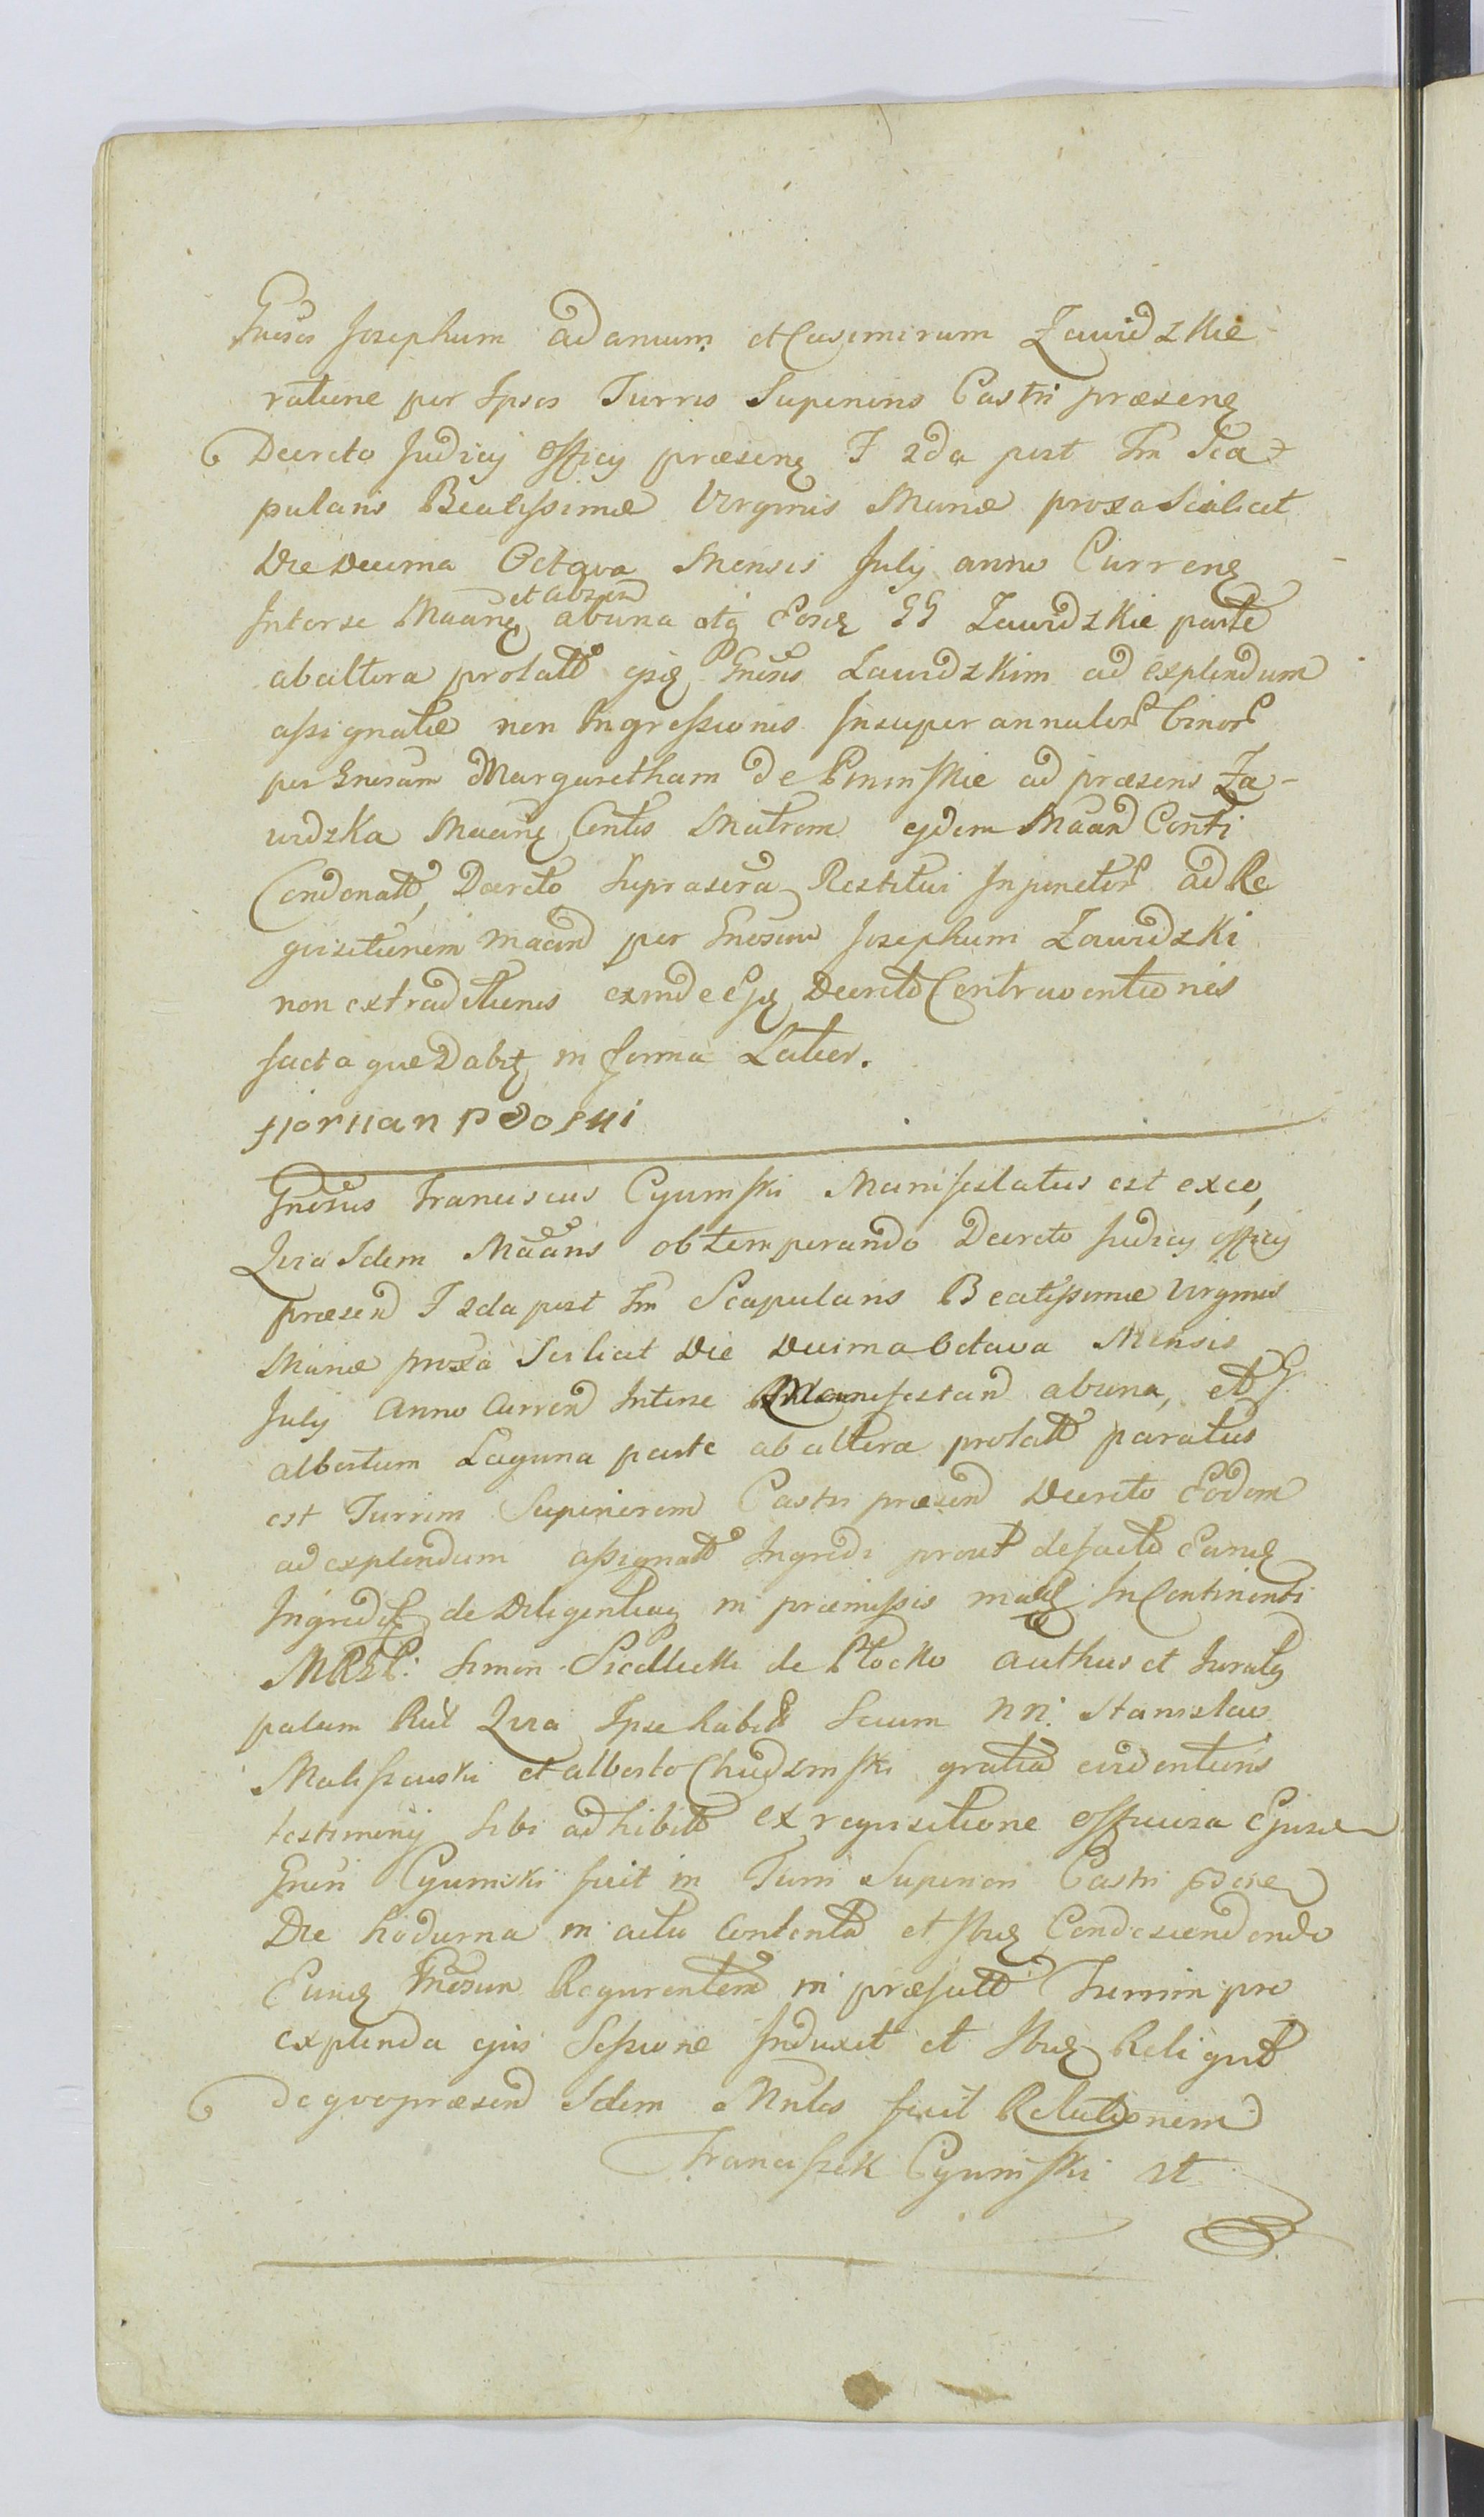 Gnosos Josephum Adamum et Casimirum Zawidzkie
ratione per Ipsos Turris Superioris Castri præsenq
Decreto Judicij Officij præsenq F 2da post Fm Sca-
pularis Beatissimæ Virginis Mariæ proxa Scilicet
Die Decima Octava Mensis Julij anno Currenq
Interse Maanq et absend abuna atq Eosq GG Zawidzkie parte
abaltera prolatt ipsq Gnosis Zawidzkim ad explendum
assignatæ non Ingressionis Insuper annulor binor
per Gnosam Margaretham de Pninskie ad præsens Za-
widzka Maanq Contis Matrem ejdem Maand Conti
Condonatt, Decreto Suprascra Restitui Injunctor ad Re
quisitionem Maand per Gnosum Josephum Zawidzki
non extraditionis exinde Ejq Decreto Contraventionis
facta que Dabit in forma Latior.
Gnosus Franciscus Cyumski Manifestatus est exce,
Quia Idem Maans obtemperando Decreto Judicij officij
præsend F 2da post Fm Scapularis Beatissimæ Virginis
Mariæ proxa Scilicet Die Decima Octava Mensis
Julij Anno Currend Interse Manifestand abuna, et G
Albertum Laguna parte ab altera prolatt paratus
est Turrim Superiorem Castri præsend Decreto Eodem
ad explendum assignatt Ingredi prout defacto Eamq
Ingredit de Diligentiaq in præmissis InContinenti
Simon Siedlecki de Plocko Authus et Juratq
palam Rul Quia Ipse habit Secum NN: Stanislao
Maliszewski et Alberto Chudzinski gratia evidentioris
testimonij sibi adhibitt ex requisitione officiosa Ejusd
Gnosi Cyumski fuit in Turri Superiori Castri
Die hodierna in actu Contento et Ibiq Condescendendo
Eumq Gnosum Requirentem in præfatt Turrim pro
explenda ejus Sessione Induxit et Ibiq Reliquit
de quo præsend Idem Mnlis fecit Relationem
Franciszek Cyumski